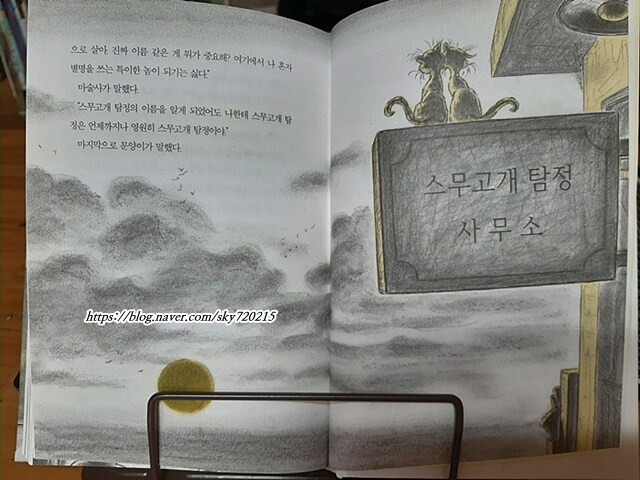 으로 살아. 진짜 이름 같은 게 뭐가 중요해? 여기에서 나 혼자
별명을 쓰는 특이한 놈이 되기는 싫다."
마술사가 말했다.
"스무고개 탐정의 이름을 알게 되었어도 나한테 스무고개 탐
정은 언제까지나 영원히 스무고개 탐정이야."
마지막으로 문양이가 말했다.
스무고개 탐정
사무소
https://blog.naver.com/sky720215